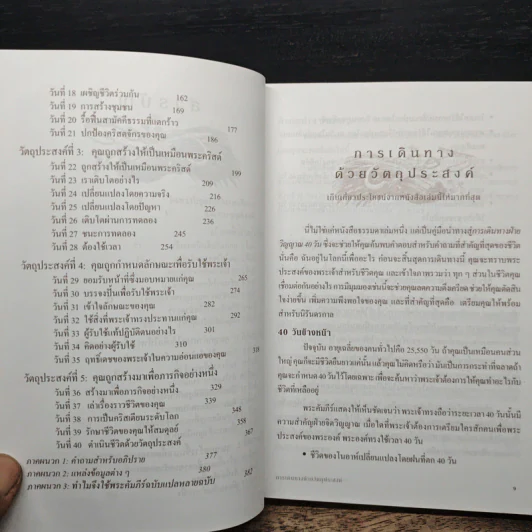 วันที่ 18 เผชิญชีวิตร่วมกัน 162
วันที่ 19 การสร้างชุมชน 169
วันที่ 20 รื้อฟื้นสามัคคีธรรมที่แตกร้าว 177
วันที่ 21 ปกป้องคริสตจักรของคุณ 186
วัตถุประสงค์ที่ 3: คุณถูกสร้างให้เป็นเหมือนพระคริสต์
วันที่ 22 ถูกสร้างให้เป็นเหมือนพระคริสต์ 199
วันที่ 23 เราเติบโตอย่างไร 209
วันที่ 24 เปลี่ยนแปลงโดยความจริง 216
วันที่ 25 เปลี่ยนแปลงโดยปัญหา 226
วันที่ 26 เติบโตผ่านการทดลอง
วันที่ 27 ชนะการทดลอง 245
วันที่ 28 ต้องใช้เวลา 254
วัตถุประสงค์ที่ 4: คุณถูกกำหนดลักษณะเพื่อรับใช้พระเจ้า
วันที่ 29 ยอมรับหน้าที่ซึ่งมอบหมายแก่คุณ 265
วันที่ 30 บรรจงปั้นเพื่อรับใช้พระเจ้า 274
วันที่ 31 เข้าใจลักษณะของคุณ 282
วันที่ 32 ใช้สิ่งที่พระเจ้าทรงประทานแก่คุณ 292
วันที่ 33 ผู้รับใช้แท้ปฏิบัติตนอย่างไร 301
วันที่ 34 คิดอย่างผู้รับใช้ 310
วันที่ 35 ฤทธิ์เดชของพระเจ้าในความอ่อนแอของคุณ
วัตถุประสงค์ที่ 5: คุณถูกสร้างมาเพื่อภารกิจอย่างหนึ่ง
วันที่ 36 สร้างมาเพื่อภารกิจอย่างหนึ่ง 329
วันที่ 37 เล่าเรื่องราวชีวิตของคุณ 339
วันที่ 38 การเป็นคริสเตียนระดับโลก 348
วันที่ 39 รักษาชีวิตของคุณให้สมดุลย์ 358
วันที่ 40 ดำเนินชีวิตด้วยวัตถุประสงค์ 367
ภาคผนวก 1: คำถามสำหรับอภิปราย 377
ภาคผนวก 2: แหล่งข้อมูลต่าง ๆ 380
ภาคผนวก 3: ทำไมจึงใช้พระคัมภีร์ฉบับแปลหลายฉบับ 382
การเดินทาง
ด้วยวัตถุประสงค์
เก็บเกี่ยวประโยชน์จากหนังสือเล่มนี้ให้มากที่สุด
นี่ไม่ใช่แค่หนังสือธรรมดาเล่มหนึ่ง แต่เป็นคู่มือนำทางสู่การเดินทางฝ่าย
วิญญาณ 40 วัน ซึ่งจะช่วยให้คุณค้นพบคำตอบสำหรับคำถามที่สำคัญที่สุดของชีวิต
นั่นคือ ฉันอยู่ในโลกนี้เพื่ออะไร ก่อนจะสิ้นสุดการเดินทางนี้ คุณจะทราบพระ
ประสงค์ของพระเจ้าสำหรับชีวิตคุณ และเข้าใจภาพรวมว่า ทุก ๆ ส่วนในชีวิตคุณ
เชื่อมต่อกันอย่างไร การมีมุมมองเช่นนี้จะช่วยคุณลดความตึงเครียด ช่วยให้คุณตัดสิน
ใจง่ายขึ้น เพิ่มความพึงพอใจของคุณ และที่สำคัญที่สุดคือ เตรียมคุณให้พร้อม
สำหรับนิรันดรกาล
40 วันข้างหน้า
ปัจจุบัน อายุเฉลี่ยของคนทั่วไปคือ 25,550 วัน ถ้าคุณเป็นเหมือนคนส่วน
ใหญ่ คุณก็จะมีชีวิตยืนยาวแค่นั้น แล้วคุณไม่คิดหรือว่ามันเป็นการกระทำที่ฉลาดถ้า
คุณจะกำหนด 40 วันไว้โดยเฉพาะ เพื่อจะค้นหาว่าพระเจ้าต้องการให้คุณทำอะไรกับ
ชีวิตที่เหลืออยู่
พระคัมภีร์แสดงให้เห็นชัดเจนว่า พระเจ้าทรงถือว่าระยะเวลา 40 วันนั้นมี
ความสำคัญฝ่ายจิตวิญญาณ เมื่อใดที่พระเจ้าต้องการเตรียมใครสักคนเพื่อพระ
ประสงค์ของพระองค์ พระองค์ทรงใช้เวลา 40 วัน
• ชีวิตของโนอาห์เปลี่ยนแปลงโดยฝนที่ตก 40 วัน
9